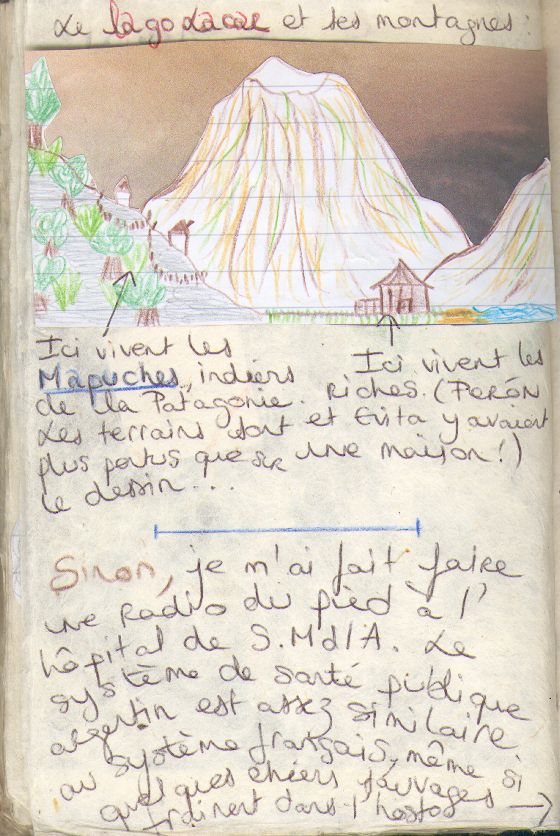 Le lago Lacar et ses montagnes :
Ici vivent les
Mapuches, indiens
de la Patagonie.
Les terrains sont
plus pentus que sur
le dessin...
Ici vivent les
riches. (Perón
et Evita y avaient
une maison !)
Sinon, je m'ai fait faire
une radio du pied à l'
hôpital de S.MdlA. Le
système de santé publique
argentin est assez similaire
au système français, même si
quelques chiens sauvages
traînent dans l'hosto →